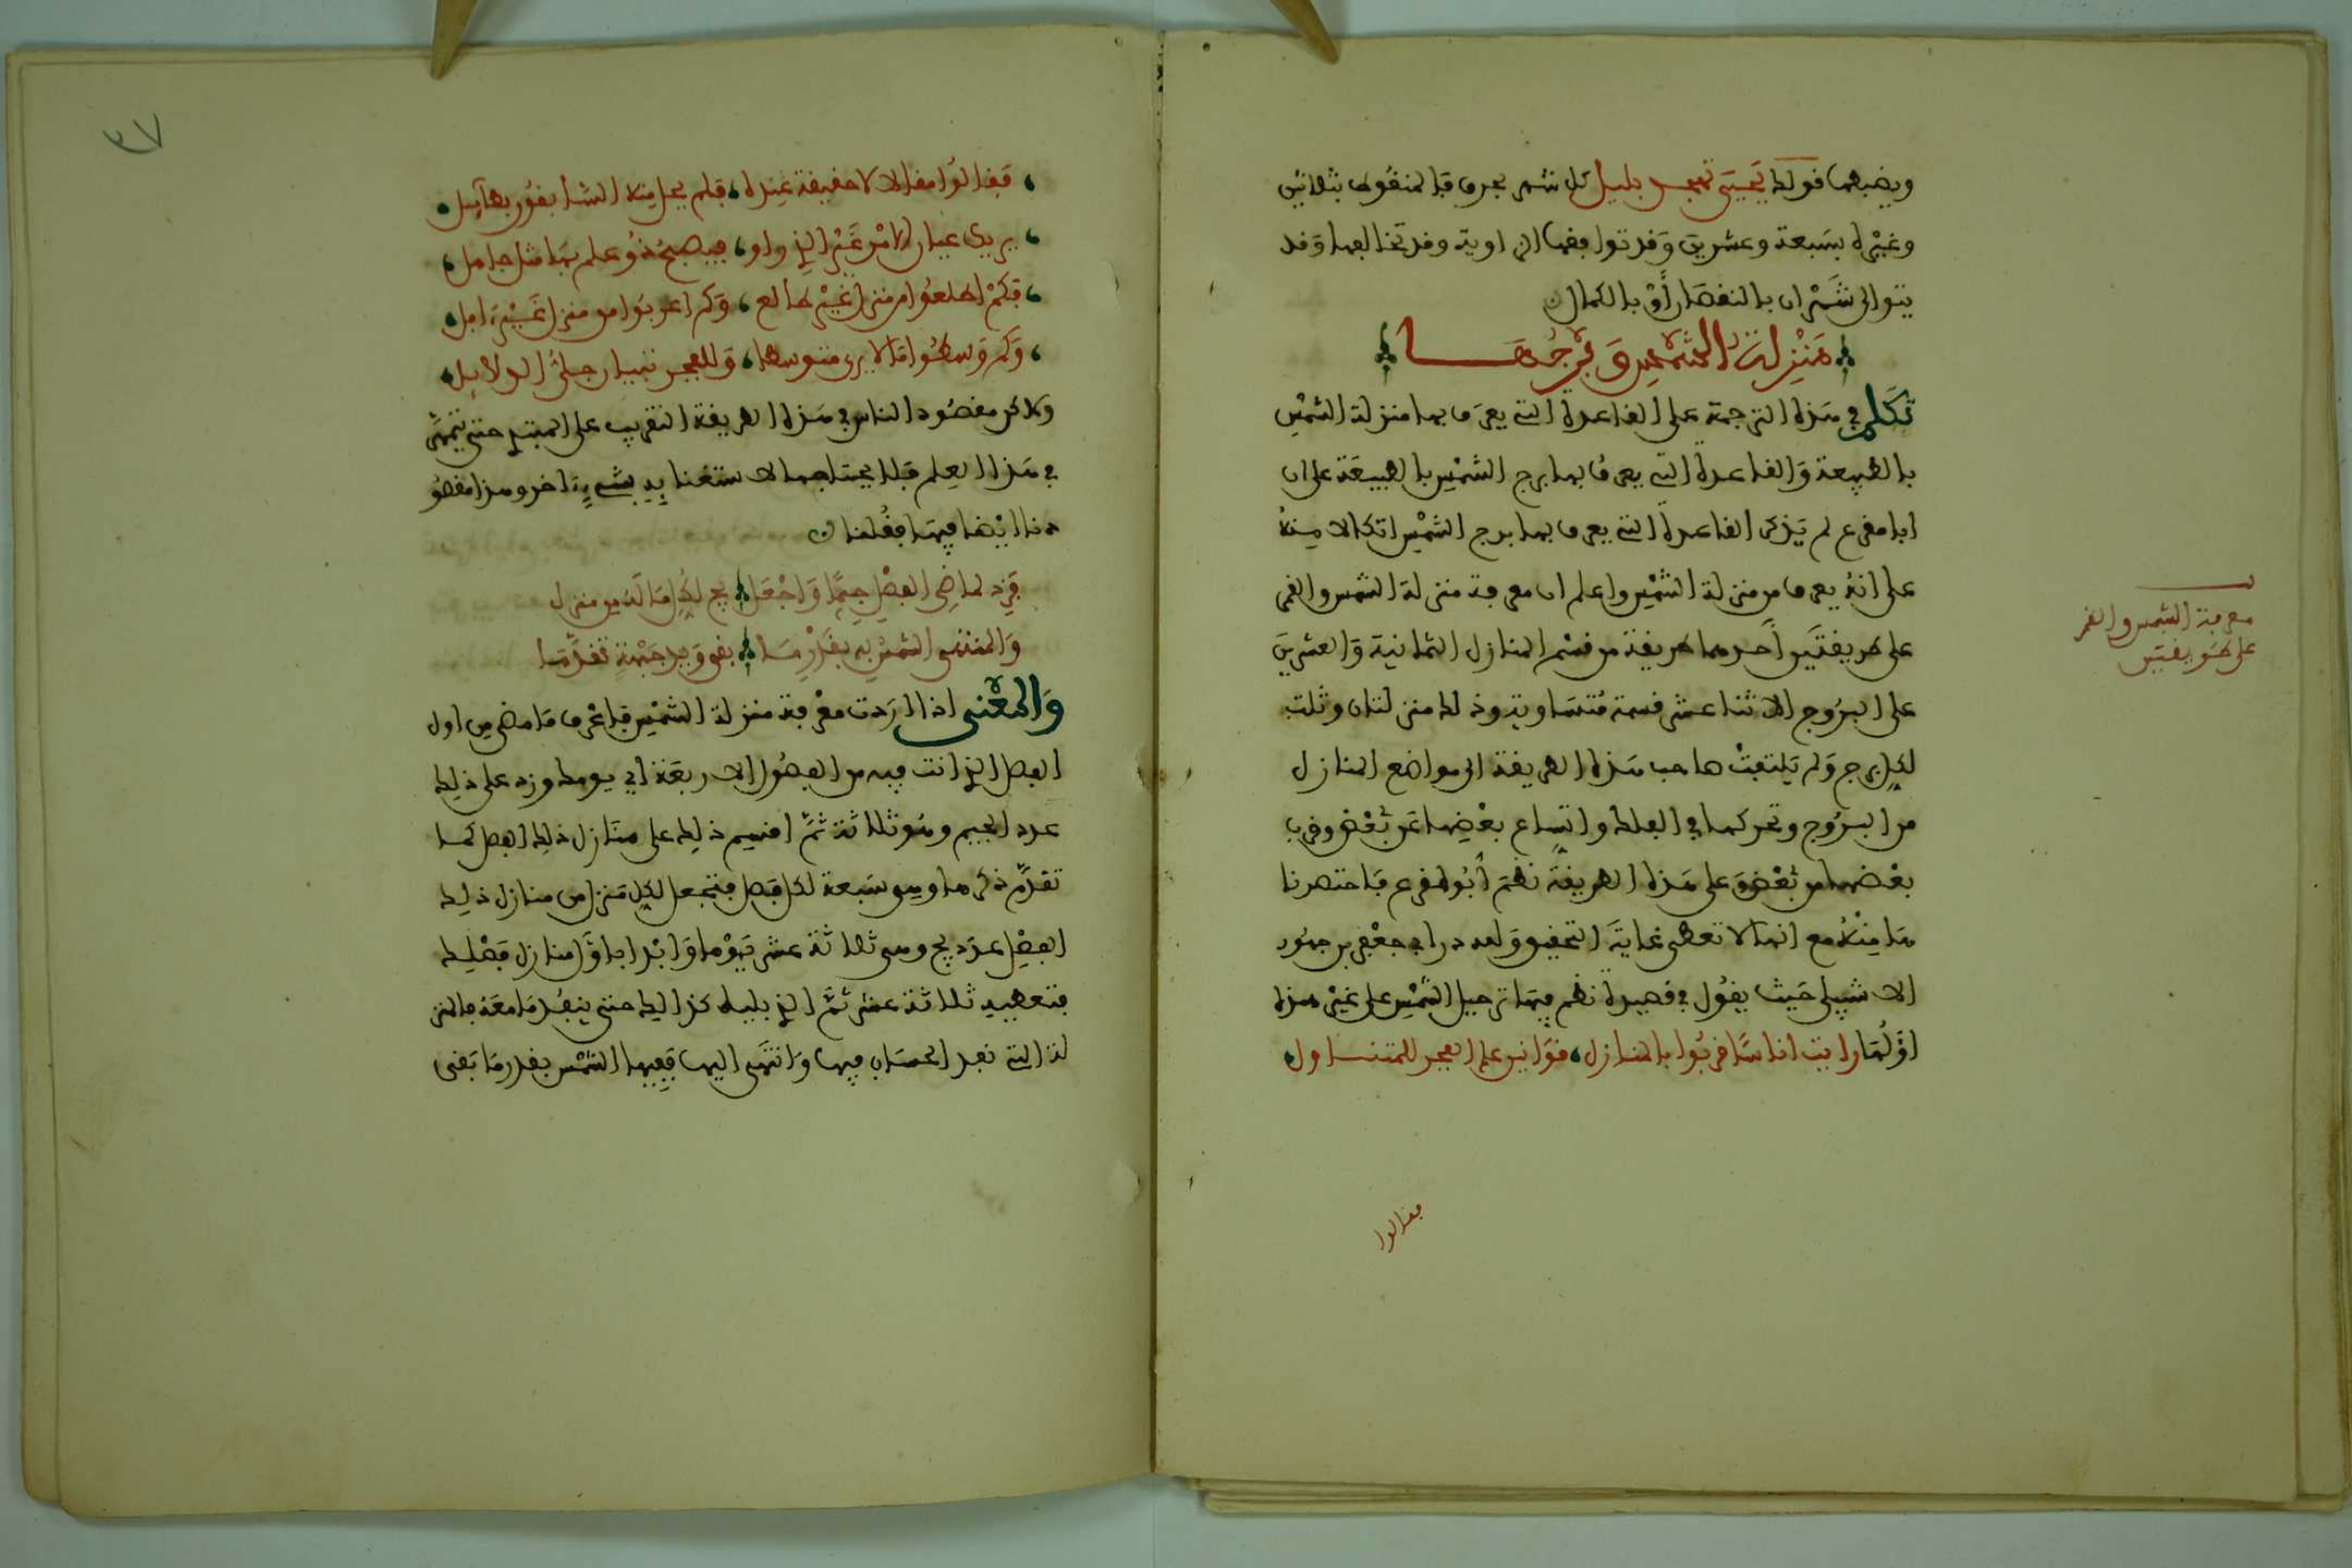 ويضبطها قولك يحيى تهجد بليل كل شهر بحرف فالمنقوط بثلاثين
وغيره بسبعة وعشرين وقد توافقها الراوية وقد تخالفها وقد
يتوالى شهران بالنقصان أو بالكمال
منزلة الشمس وبرجها
تكلم في هذه الترجمة على القاعدة التي يعرف بها منزلة الشمس
بالطبيعة والقاعدة التي يعرف بها برج الشمس بالطبيعة على ان
ابا مقرع لم يذكر القاعدة التي يعرف بها برج الشمس اتكالا منه
على انه يعرف من منزلة الشمس واعلم ان معرفة منزلة الشمس والقمر
على طريقتين أحدهما طريقة من قسم المنازل الثمانية والعشرين
على البروج الاثنا عشر قسمة متساوية وذلك منزلتان وثلث
لكل برج ولم يلتفت صاحب هذه الطريقة الى مواضع المنازل
من البروج وتحركها في الفلك واتساع بعضها عن بعض وقرب
بعضها من بعض وعلى هذه الطريقة نظم أبو مقرع فاختصرنا
هنا منه مع انها لا تعطي غاية التحقيق ولله در ابي جعفر بن جهور
الاشبيلي حيث يقول في قصيدة نظم فيها ترحيل الشمس على غير هذه
ولما رايت اناسا قربوا بالمنازل قوانين علم الفجر للمتناول
فقالوا
معرفة الشمس والقمر
على طريقتين
٣٧
فقالوا مقالا لا حقيقة عنده فلم يحل منه الشا بقور بطايل
يريك عيان الامر غير الذ راو فيصبح ذو علم بها مثل جاهل
فكم اطلعوا من منزل غير طالع وكم اغربوا من منزل غير افل
وكم وسطوا ما لا يرى متوسطا وللفجر تبيان جلي الدلايل
ولاكن مقصود الناس في هذه الطريقة التقريب على المبتد حتى يتمهر
في هذا العلم فلا يحتاج الاستغنايه بشيء اخر وهذا مقصو
دنا ايضا فيها فقلنا
فزد لماضي الفصل جيما واجعل يج لكل ما له من منزل
والمنتهى الشمس به بقدر ما بقي وبرجه تقدما
والمعنى اذا اردت معرفة منزلة الشمس فاعرف ما مضى من اول
الفصل الذ انت فيه من الفصول الاربعة الي يومك وزد على ذلك
عدد الجيم وهو ثلاثة ثم اقسم ذلك على منازل ذلك الفصل كما
تقدم ذكرها وهي سبعة لكل فصل فتجعل لكل منزل من منازل ذلك
الفصل عدد يج وهي ثلاثة عشر يوما وابدا باول منازل فصلك
فتعطيه ثلاثة عشر ثم الذ يليه كذالك حتى ينفد ما معه فالمنز
لة التي نفد الحساب فيها وانتهى اليها ففيها الشمس بقدر ما بقى